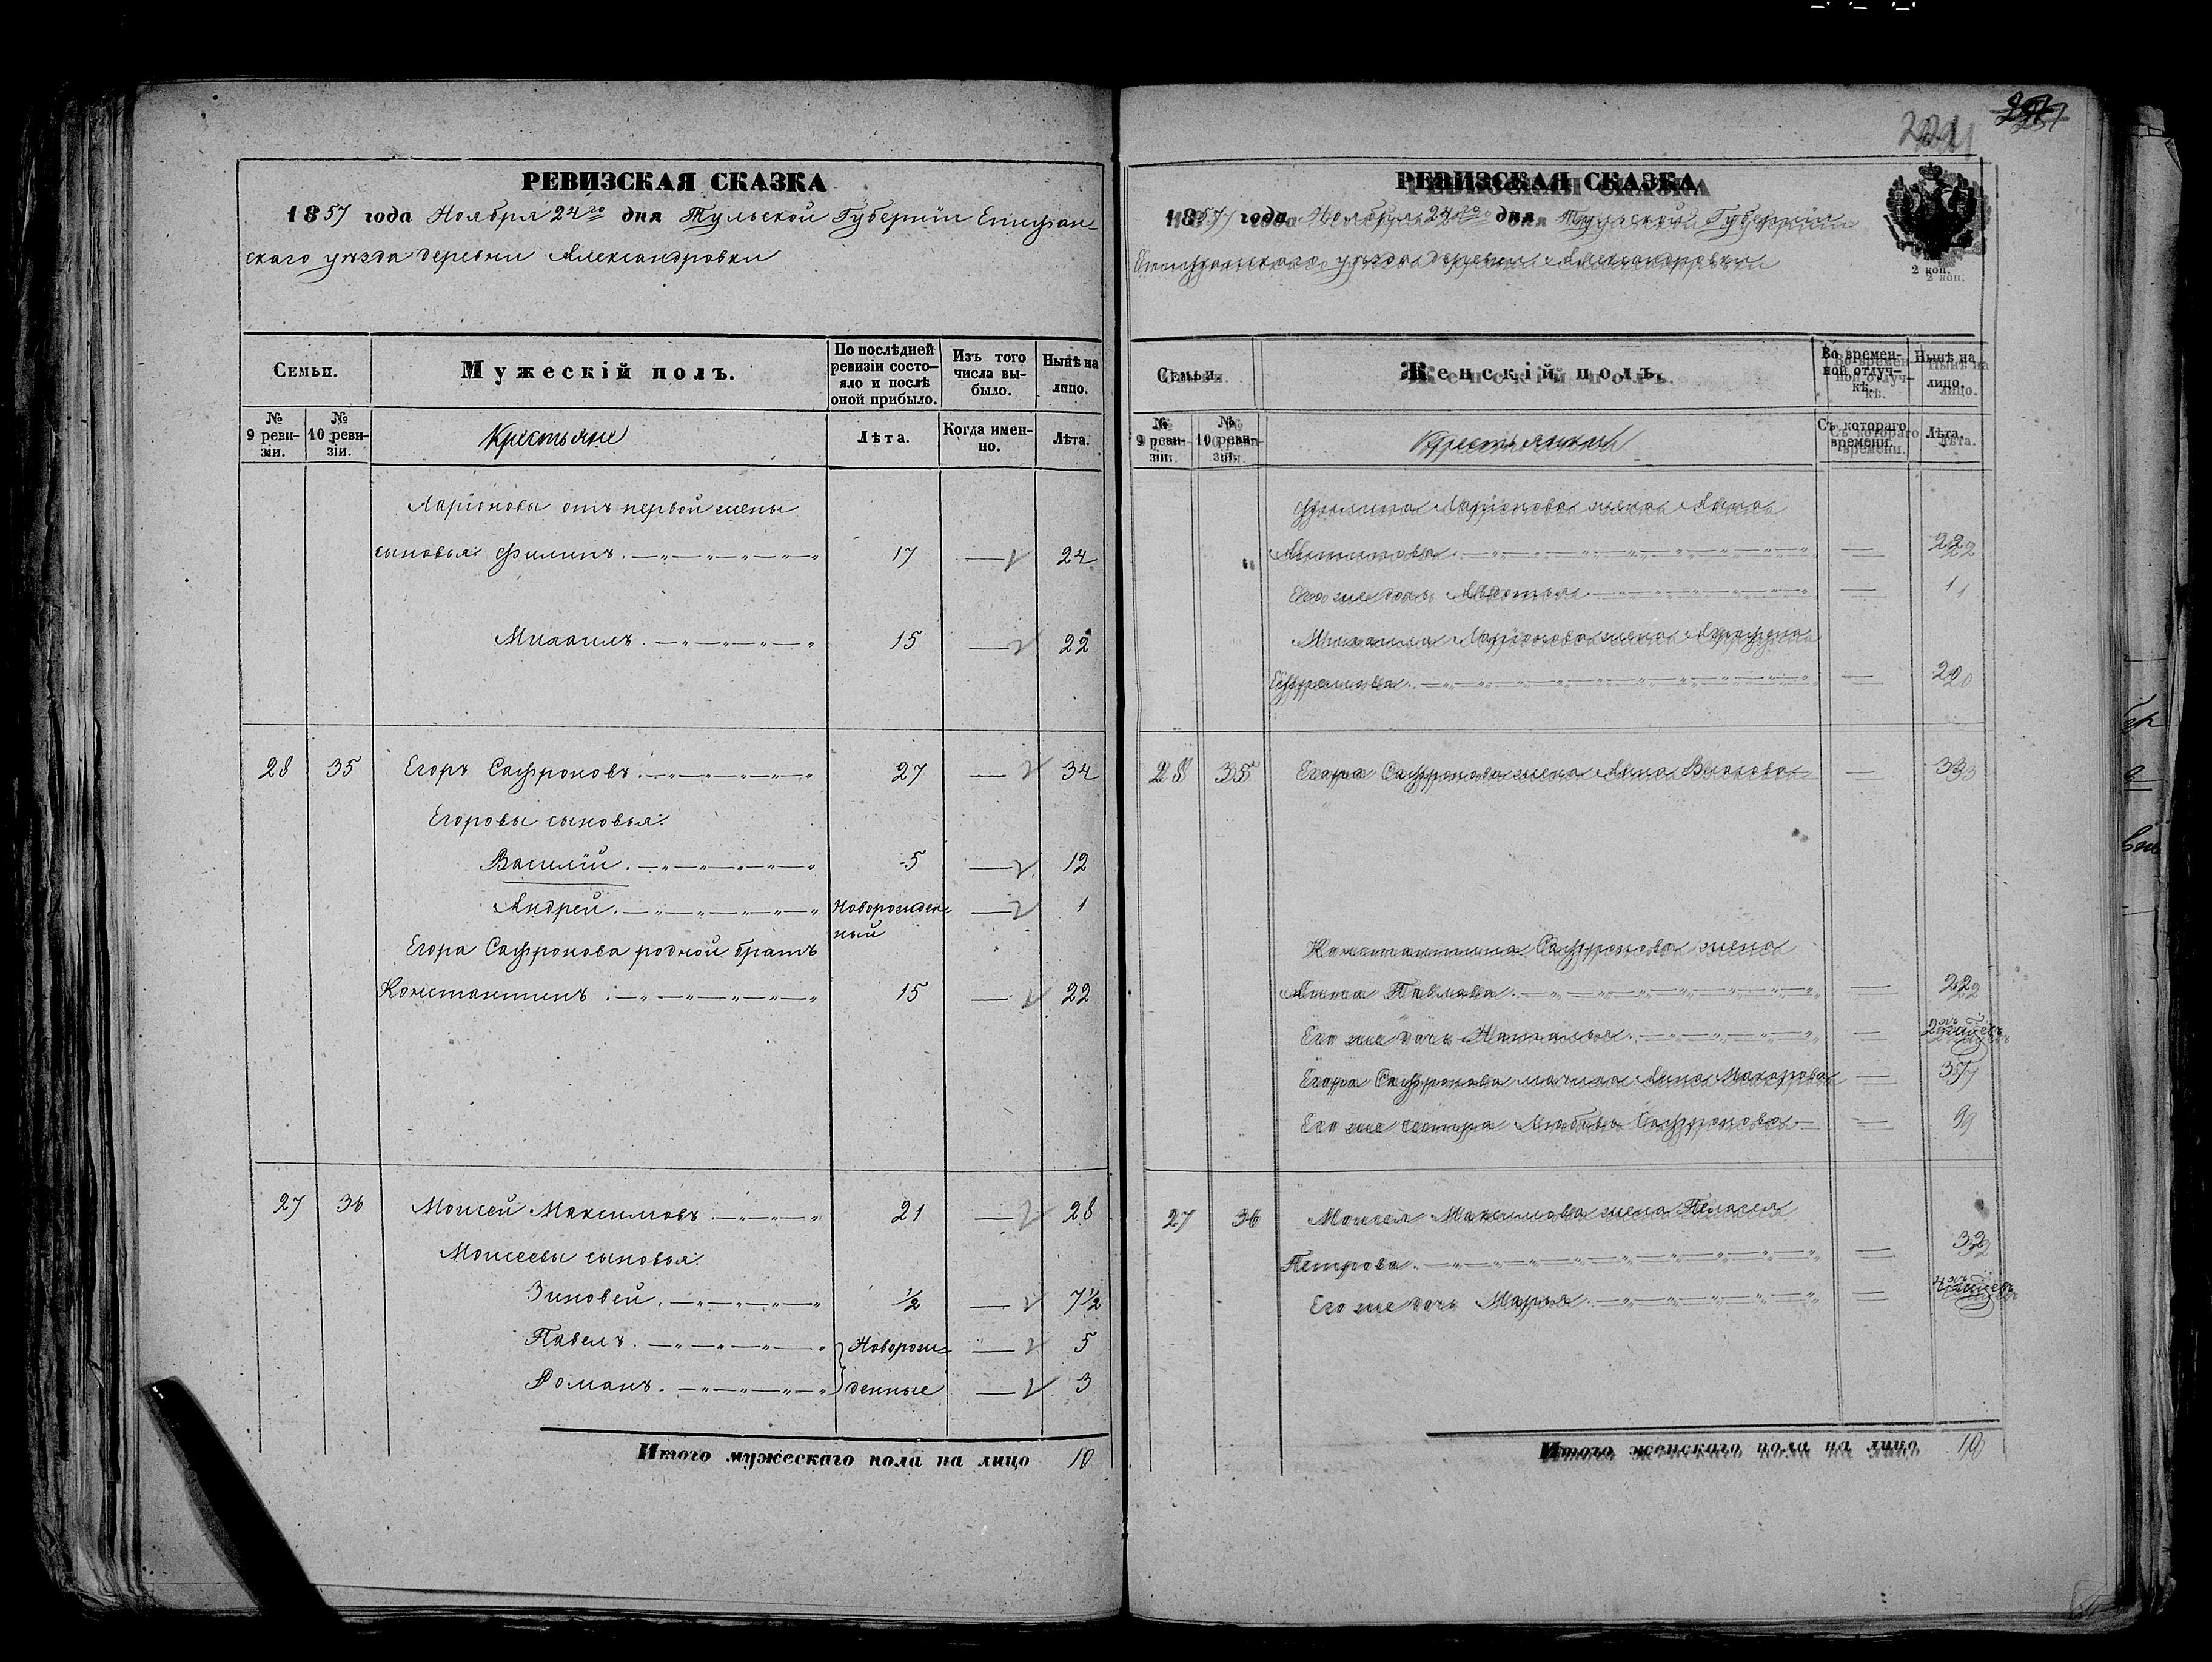 РЕВИЗСКАЯ СКАЗКА
1857 года Ноября 24го дня Тульской Губерніи Епифан-
скаго уѣзда деревни Александровки
Семьи.
Мужескій полъ.
По послѣдней ревизіи состо-яло и послѣ оной прибыло.
Изъ того числа вы-было.
Нынѣ на лицо.
№ 9 реви-зіи.
№ 10 реви-зіи.
Крестьяне
Лѣта.
Когда имен-но.
Лѣта.
Ларіоновы отъ первой жены
сыновья: Филипъ. 17 — 24
Михаилъ. 15 — 22
28 35 Егоръ Сафроновъ. 27 — 34
Егоровы сыновья:
Василій. 5 — 12
Андрей. Новорожден-ный — 1
Егора Сафронова родной братъ
Константинъ. 15 — 22
27 36 Моисей Максимовъ 21 — 28
Моисеевы сыновья:
Зиновей. 1/2 — 7 1/2
Павелъ. Новорож- — 5
Романъ. денные — 3
Итого мужескаго пола на лицо 10
224
РЕВИЗСКАЯ СКАЗКА
1857 года Ноября 24го дня Тульской Губерніи
Епифанскаго уѣзда деревни Александровки
2 коп.
Семьи.
Женскій полъ.
Во времен-ной отлуч-кѣ.
Нынѣ на лицо.
№ 9 реви-зіи.
№ 10 реви-зіи.
Крестьянки
Съ котораго времени.
Лѣта.
Филипа Ларіонова жена Анна
— 22
Его же дочь Авдотья. — 1
Михаила Ларіонова жена Аграфена
Ефремова. — 20
28 35 Егора Сафронова жена Анна — 33
Константина Сафронова жена
Анна Павлова. — 22
Его же дочь Наталья. —
Егора Сафронова мачиха Анна Макарова — 37
Его же сестра Любовь Сафронова — 9
27 36 Моисея Максимова жена Пелагея
Петрова. — 32
Его же дочь Марья. —
Итого женскаго пола на лицо 10